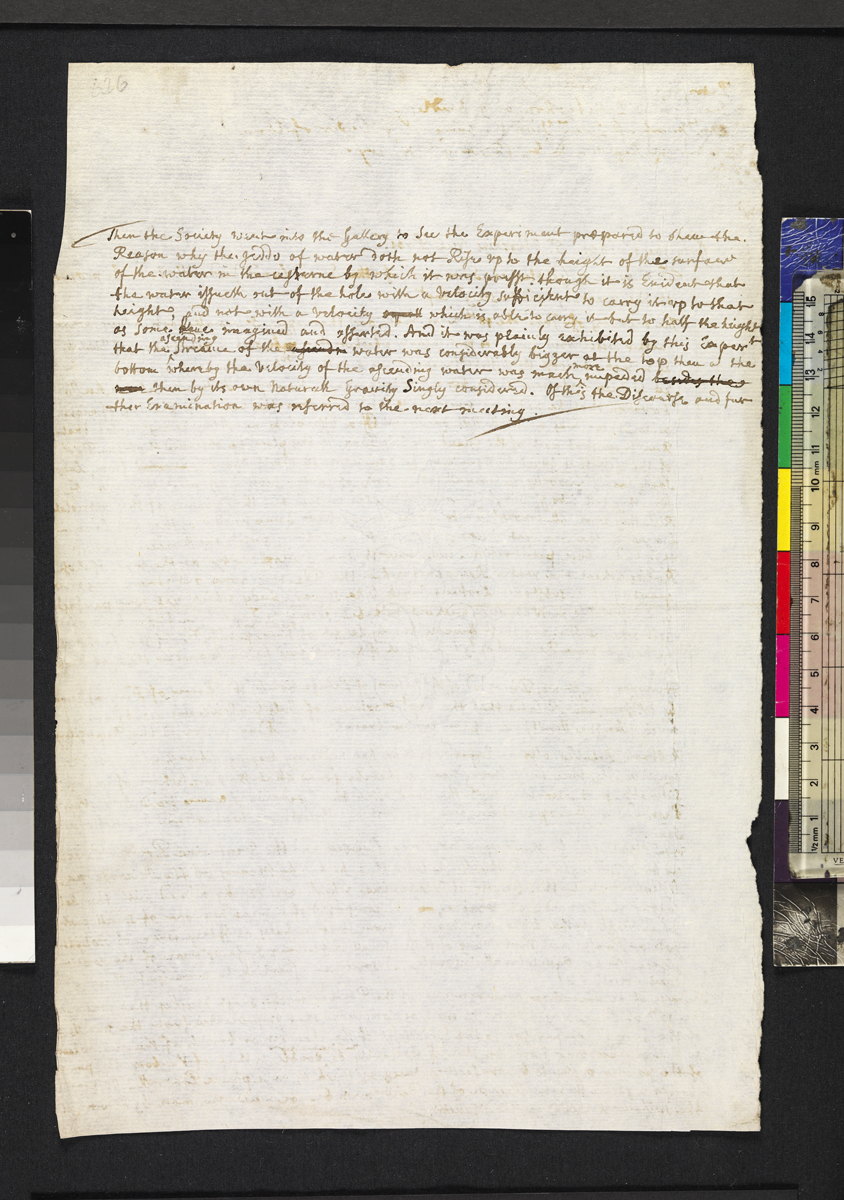 326
the
Then the Society went into the Gallery to See the Experiment prepared to shew the
Reason why the Jeddo of water doth not Rise up to the height of the surface
of the water in the cisterne by which it was presst though it is Evident that
the water issueth out of the hole with a Velocity sufficient to carry it up to that
height, and not with a velocity equall which is able to carry it but to half the height
as some have imagined and asserted. And it was plainly exhibited by this Experm^t
that the ascending streame of the ascendin water was considerably bigger at the top then at the
bottom whereby the Velocity of the ascending water was much more impeded besides the
then by its own Naturall Gravity Singly considered. Of this the Discourse and fur
ther Examination was referred to the next meeting.
15
14
13
12
11
10 mm
9
8
7
6
5
4
3
2
1
½ mm
VE